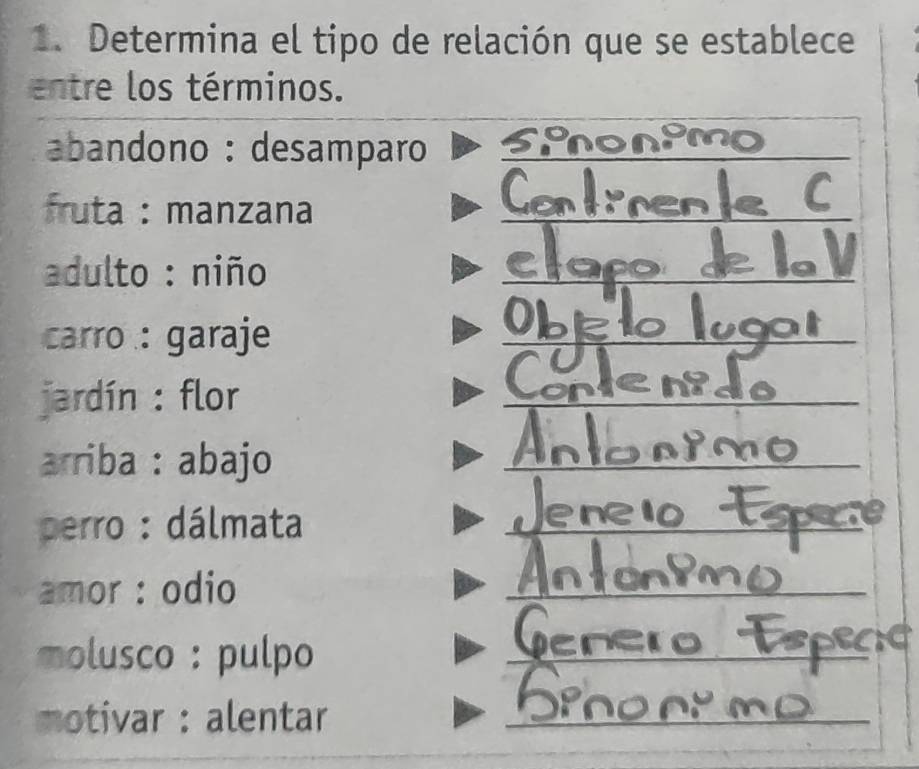 1. Determina el tipo de relación que se establece
entre los términos.
abandono : desamparo ▶ sinonimo
fruta : manzana ▶ Continente C
adulto : niño ▶ etapa de la V
carro : garaje ▶ Objeto lugar
jardín : flor ▶ Contenido
arriba : abajo ▶ Antonimo
perro : dálmata ▶ Jenero Especie
amor : odio ▶ Antónimo
molusco : pulpo ▶ Genero Especie
motivar : alentar ▶ Sinonimo